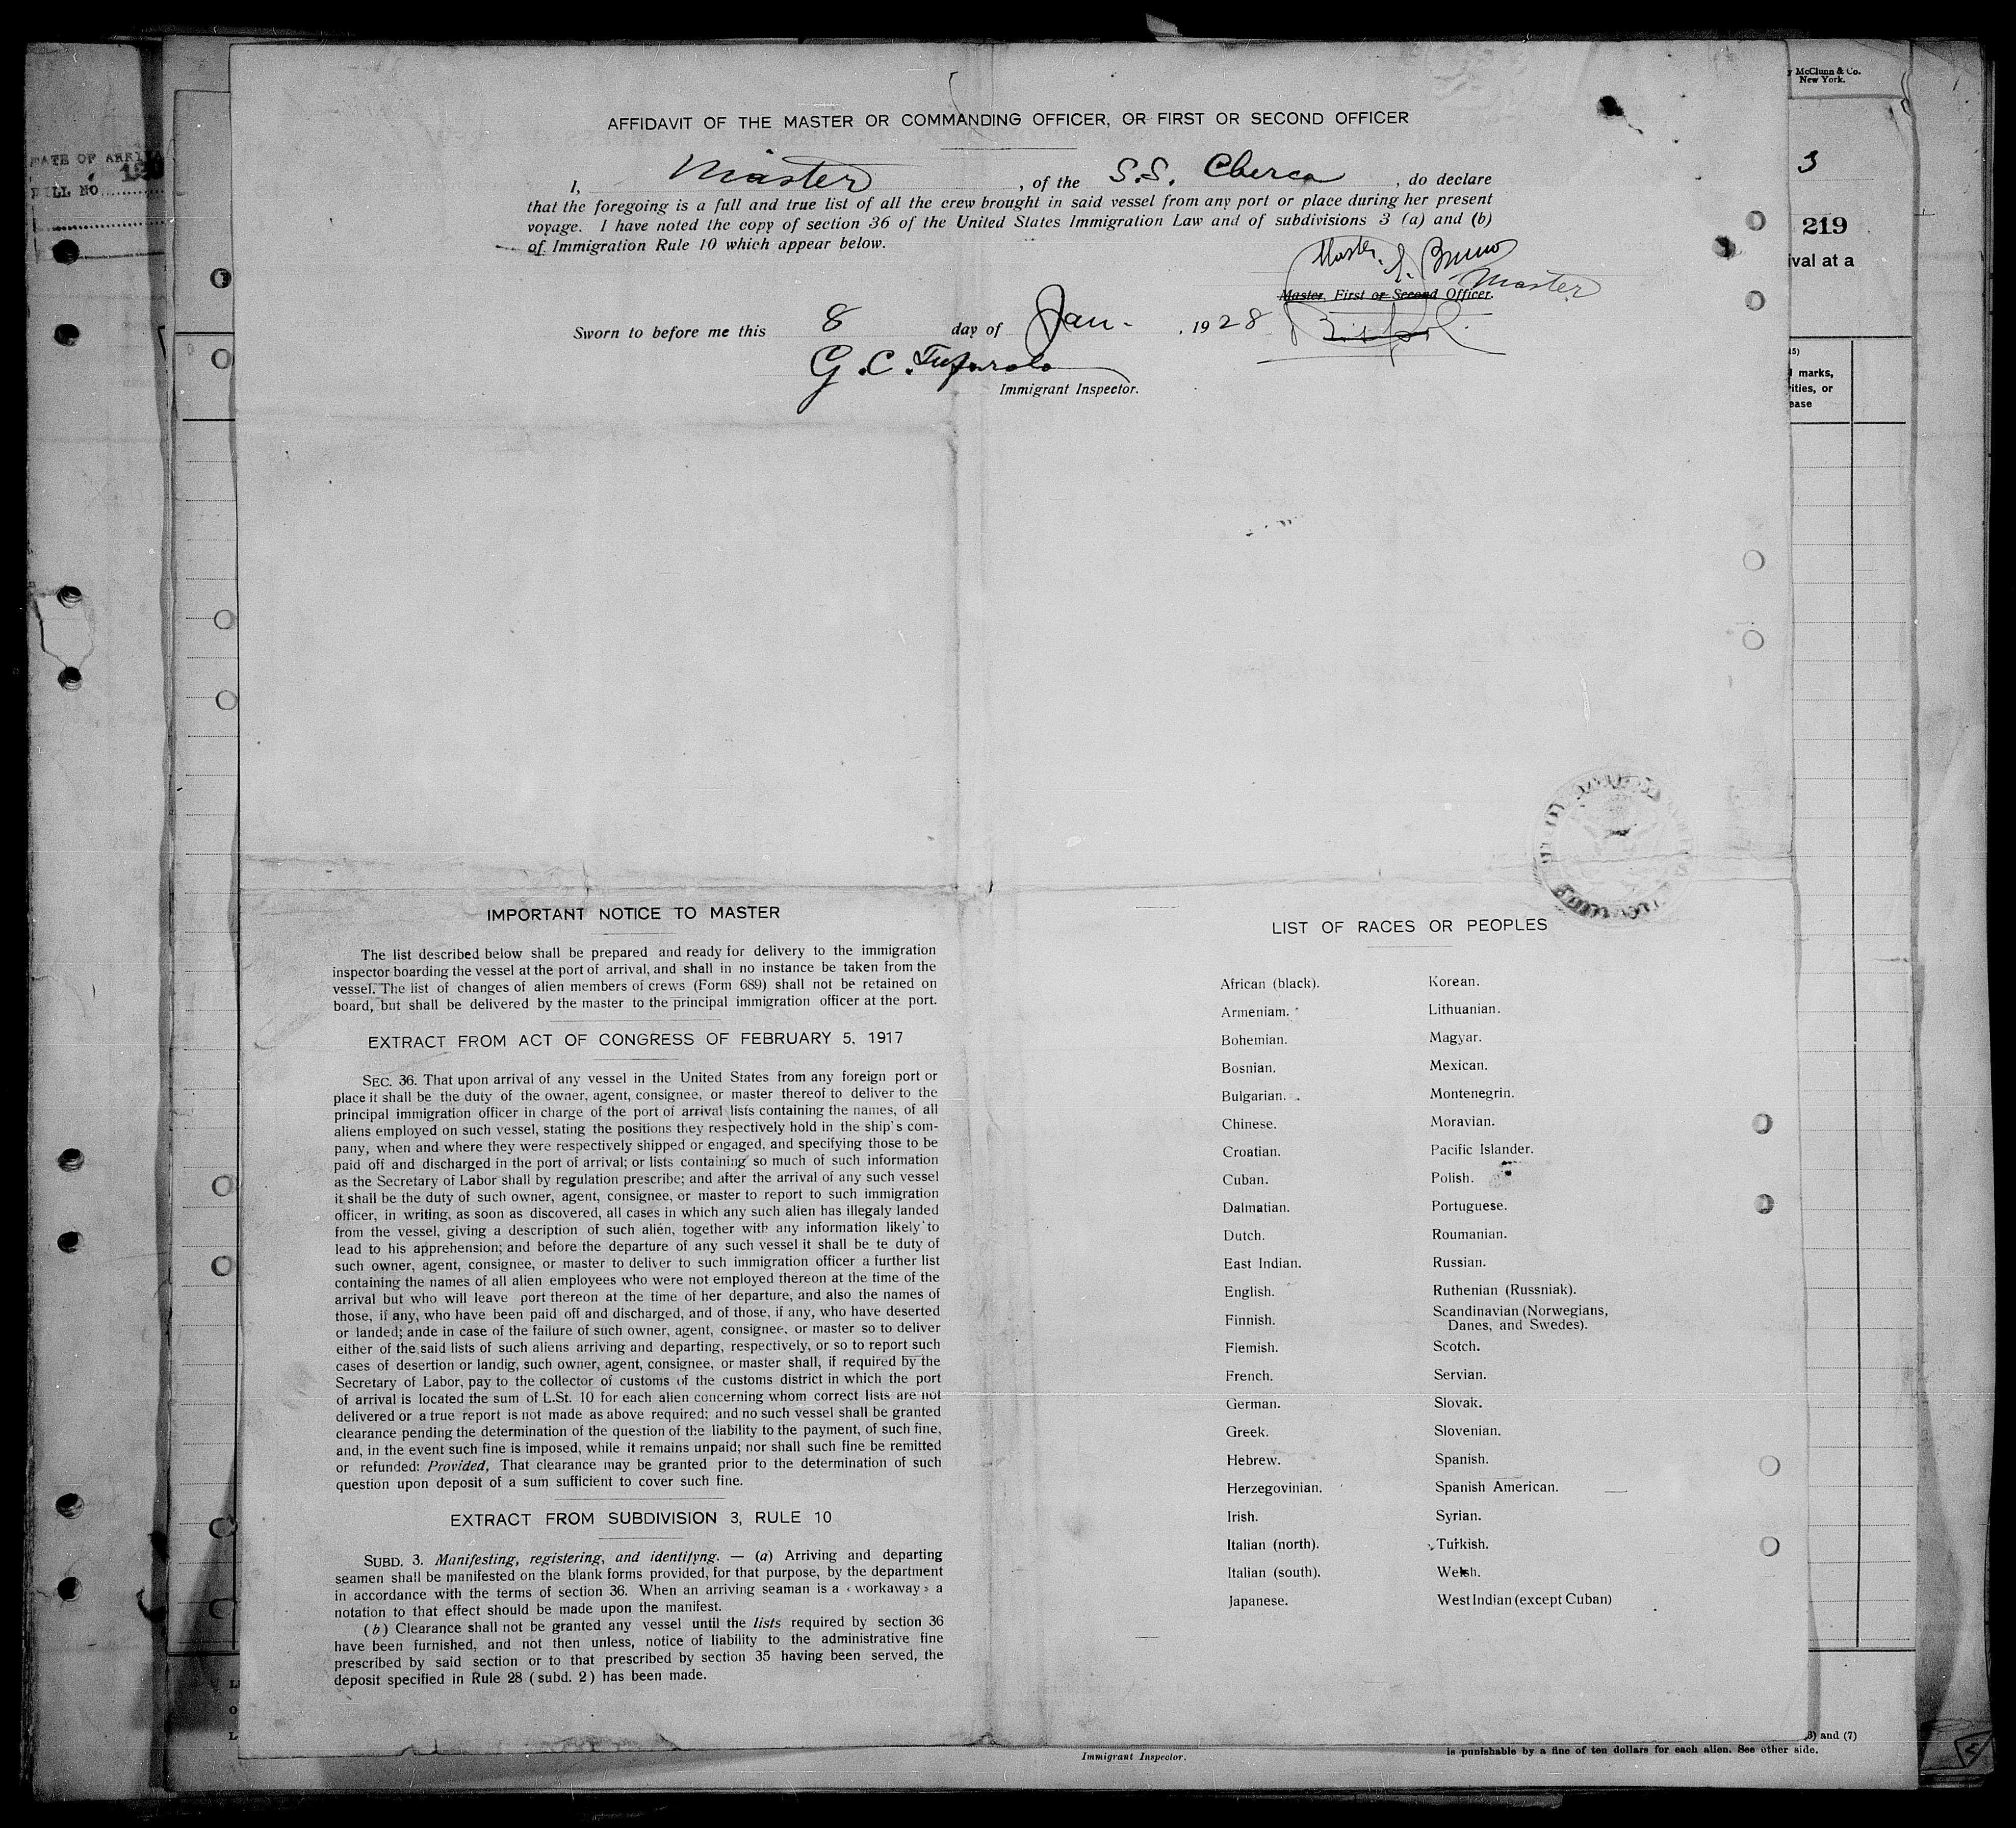 y McClunn & Co.
New York.
DATE OF ARRIVA
BILL NO
3
219
ival at a
marks,
ities, or
ease
AFFIDAVIT OF THE MASTER OR COMMANDING OFFICER, OR FIRST OR SECOND OFFICER
I, Master, of the S.S. Cherca, do declare
that the foregoing is a full and true list of all the crew brought in said vessel from any port or place during her present
voyage. I have noted the copy of section 36 of the United States Immigration Law and of subdivisions 3 (a) and (b)
of Immigration Rule 10 which appear below.
Master. Bruno
Master
Master, First or Second Officer.
Sworn to before me this 8 day of Jan. , 1928
G. C.
Immigrant Inspector.
IMPORTANT NOTICE TO MASTER
The list described below shall be prepared and ready for delivery to the immigration
inspector boarding the vessel at the port of arrival, and shall in no instance be taken from the
vessel. The list of changes of alien members of crews (Form 689) shall not be retained on
board, but shall be delivered by the master to the principal immigration officer at the port.
EXTRACT FROM ACT OF CONGRESS OF FEBRUARY 5, 1917
SEC. 36. That upon arrival of any vessel in the United States from any foreign port or
place it shall be the duty of the owner, agent, consignee, or master thereof to deliver to the
principal immigration officer in charge of the port of arrival lists containing the names, of all
aliens employed on such vessel, stating the positions they respectively hold in the ship's com-
pany, when and where they were respectively shipped or engaged, and specifying those to be
paid off and discharged in the port of arrival; or lists containing so much of such information
as the Secretary of Labor shall by regulation prescribe; and after the arrival of any such vessel
it shall be the duty of such owner, agent, consignee, or master to report to such immigration
officer, in writing, as soon as discovered, all cases in which any such alien has illegaly landed
from the vessel, giving a description of such alien, together with any information likely to
lead to his apprehension; and before the departure of any such vessel it shall be te duty of
such owner, agent, consignee, or master to deliver to such immigration officer a further list
containing the names of all alien employees who were not employed thereon at the time of the
arrival but who will leave port thereon at the time of her departure, and also the names of
those, if any, who have been paid off and discharged, and of those, if any, who have deserted
or landed; ande in case of the failure of such owner, agent, consignee, or master so to deliver
either of the said lists of such aliens arriving and departing, respectively, or so to report such
cases of desertion or landig, such owner, agent, consignee, or master shall, if required by the
Secretary of Labor, pay to the collector of customs of the customs district in which the port
of arrival is located the sum of L.St. 10 for each alien concerning whom correct lists are not
delivered or a true report is not made as above required; and no such vessel shall be granted
clearance pending the determination of the question of the liability to the payment, of such fine,
and, in the event such fine is imposed, while it remains unpaid; nor shall such fine be remitted
or refunded: Provided, That clearance may be granted prior to the determination of such
question upon deposit of a sum sufficient to cover such fine.
EXTRACT FROM SUBDIVISION 3, RULE 10
SUBD. 3. Manifesting, registering, and identifyng. — (a) Arriving and departing
seamen shall be manifested on the blank forms provided, for that purpose, by the department
in accordance with the terms of section 36. When an arriving seaman is a « workaway » a
notation to that effect should be made upon the manifest.
(b) Clearance shall not be granted any vessel until the lists required by section 36
have been furnished, and not then unless, notice of liability to the administrative fine
prescribed by said section or to that prescribed by section 35 having been served, the
deposit specified in Rule 28 (subd. 2) has been made.
LIST OF RACES OR PEOPLES
African (black).
Armeniam.
Bohemian.
Bosnian.
Bulgarian.
Chinese.
Croatian.
Cuban.
Dalmatian.
Dutch.
East Indian.
English.
Finnish.
Flemish.
French.
German.
Greek.
Hebrew.
Herzegovinian.
Irish.
Italian (north).
Italian (south).
Japanese.
Korean.
Lithuanian.
Magyar.
Mexican.
Montenegrin.
Moravian.
Pacific Islander.
Polish.
Portuguese.
Roumanian.
Russian.
Ruthenian (Russniak).
Scandinavian (Norwegians,
Danes, and Swedes).
Scotch.
Servian.
Slovak.
Slovenian.
Spanish.
Spanish American.
Syrian.
Turkish.
Welsh.
West Indian (except Cuban)
) and (7)
Immigrant Inspector.
is punishable by a fine of ten dollars for each alien. See other side.